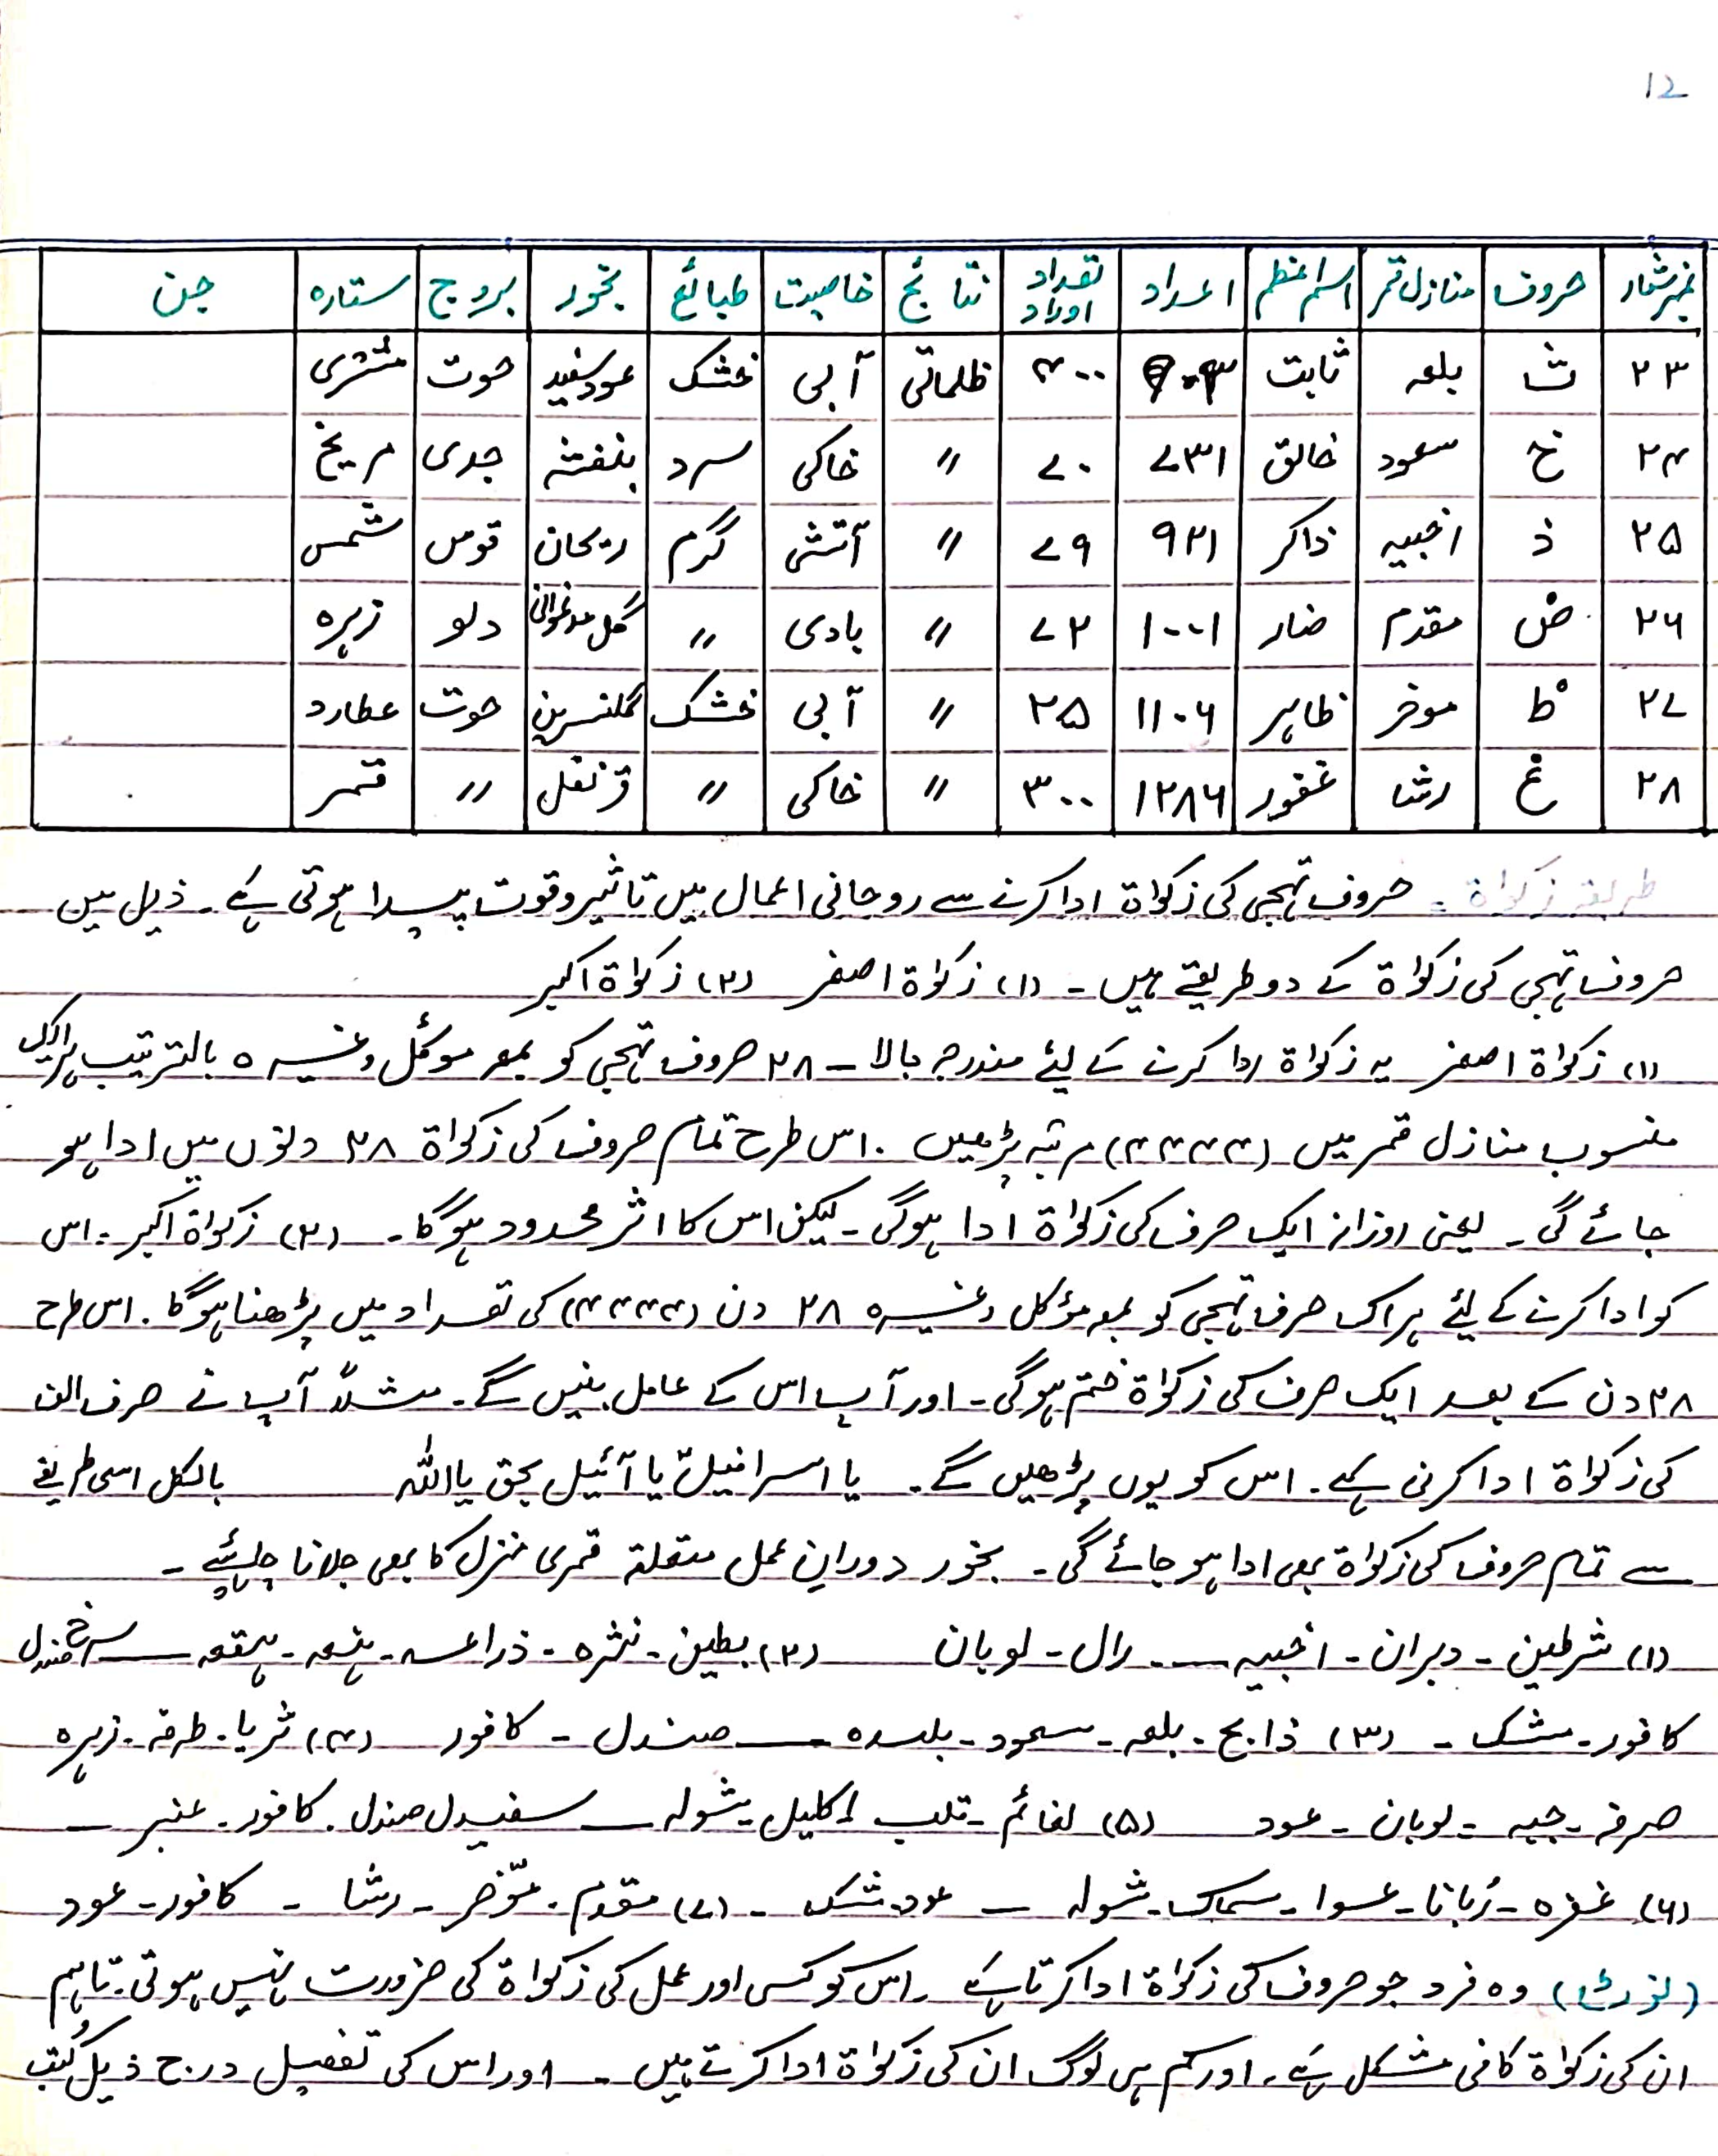 12
نمبرشمار حروف منازل قمر اسم اعظم اعداد تعداد اوراد نتائج خاصیت طبائع بخور بروج ستارہ جن
۲۳ ث بلعہ ثابت ۹۰۳ ۴۰۰ ظلماتی آبی خشک عودسفید حوت مشتری
۲۴ خ سعود خالق ۷۳۱ ۷۰〃 خاکی سرد بنفشہ جدی مریخ
۲۵ ذ اخبیہ ذاکر ۹۲۱ ۷۹ 〃 آتشی گرم ریحان قوس شمس
۲۶ ض مقدم ضار ۱۰۰۱ ۷۲ 〃 بادی 〃 گل دلو زہرہ
۲۷ ظ موخر ظاہر ۱۱۰۶ ۲۵ 〃 آبی خشک گلنسرین حوت عطارد
۲۸ غ رشا غفور ۱۲۸۶ ۳۰۰ 〃 خاکی 〃 قرنفل 〃 قمر
طریقہ زکواة ۔ حروف تہجی کی زکواة ادا کرنے سے روحانی اعمال میں تاثیر وقوت پیدا ہوتی ہے ۔ ذیل میں
حروف تہجی کی زکواة کے دو طریقے ہیں ۔ (۱) زکواة اصغر (۲) زکواة اکبر
(۱) زکواة اصغر یہ زکواة ادا کرنے کے لیئے مندرجہ بالا ۔ ۲۸ حروف تہجی کو بمعہ موکل وغیرہ بالترتیب ہر ایک
منسوب منازل قمر میں (۴۴۴۴) مرتبہ پڑھیں ۔ اس طرح تمام حروف کی زکواة ۲۸ دنوں میں ادا ہو
جائے گی ۔ یعنی روزانہ ایک حرف کی زکواة ادا ہوگی ۔ لیکن اس کا اثر محدود ہوگا ۔ (۲) زکواة اکبر ۔ اس
کو ادا کرنے کے لیئے ہر اک حرف تہجی کو بمعہ مؤکل وغیرہ ۲۸ دن (۴۴۴۴) کی تعداد میں پڑھنا ہوگا ۔ اس طرح
۲۸ دن کے بعد ایک حرف کی زکواة ختم ہوگی ۔ اور آپ اس کے عامل بنیں گے ۔ مثلاً آپ نے حرف الف
کی زکواة ادا کرنی ہے ۔ اس کو یوں پڑھیں گے ۔ یا اسرافیل یا آئیل بحق یا اللہ بالکل اسی طریقے
سے تمام حروف کی زکواة بھی ادا ہو جائے گی ۔ بخور دوران عمل متعلقہ قمری منزل کا بھی جلانا چاہیئے ۔
(۱) شرطین ۔ دبران ۔ اخبیہ ۔ رال ۔ لوبان (۲) بطین ۔ نثرہ ۔ ذراعہ ۔ ہنعہ ۔ ہقعہ ـــ سرخ صندل
کافور ۔ مشک ۔ (۳) ذابح ۔ بلعہ ۔ سعود ۔ بلدہ ـــ صندل ۔ کافور (۴) ثریا ۔ طرفہ ۔ زہرہ
صرفہ ۔ جبہہ ۔ لوبان ۔ عود (۵) نعائم ۔ قلب اکلیل ۔ شولہ ـــ سفید صندل ۔ کافور ۔ عنبر ۔
(۶) غفرہ ۔ زبانا ۔ عسوا ۔ سماک ۔ شولہ ـــ عود ۔ مشک ۔ (۷) مقدم ۔ مؤخر ۔ رشا ۔ کافور ۔ عود
(نوٹ) وہ فرد جو حروف کی زکواة ادا کرتا ہے ۔ اس کو کسی اور عمل کی زکواة کی ضرورت نہیں ہوتی ۔ تاہم
ان کی زکواة کافی مشکل ہے ۔ اور کم ہی لوگ ان کی زکواة ادا کرتے ہیں ۔ اور اس کی تفصیل درج ذیل کُتب